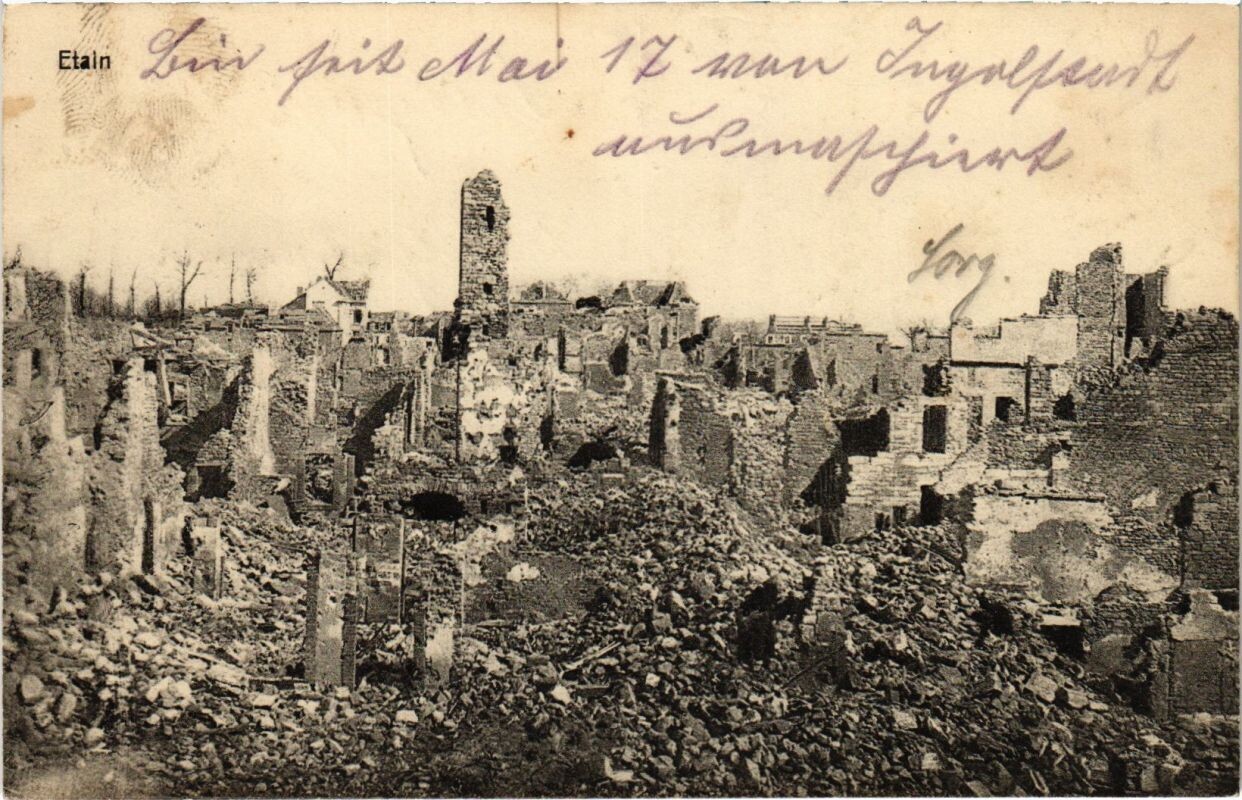 Etain
Bin seit Mai 17 von Ingolstadt
ausmaschiert
Sorg.